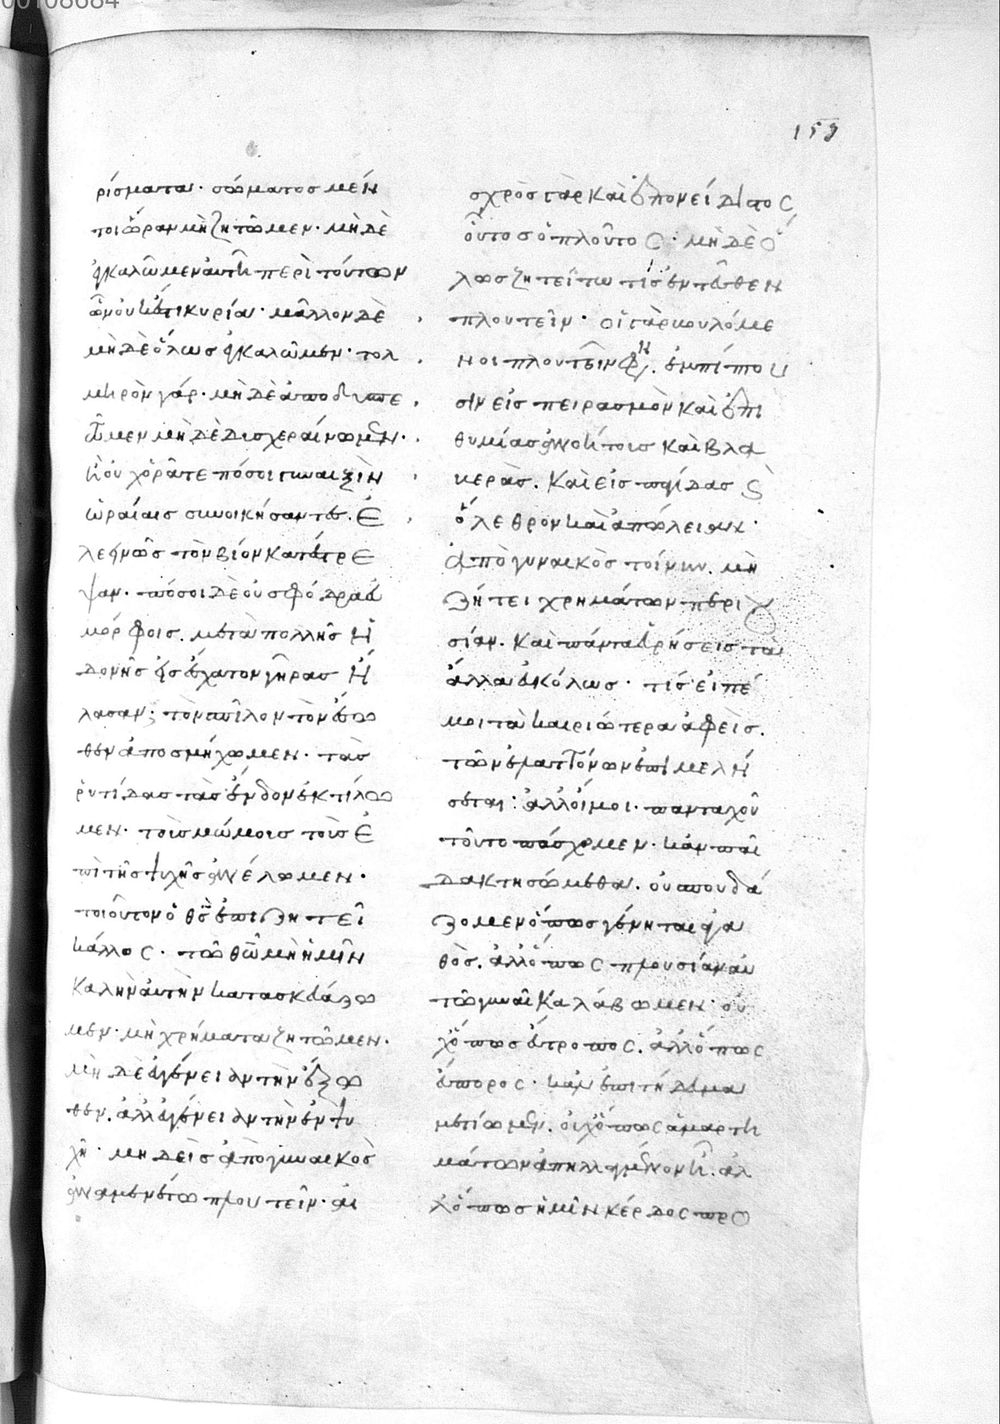 158
ρίσματα· σώματος μὲν
τοι ὥραν μὴ ζητῶμεν· μὴ δὲ
ἐγκαλῶμεν αὐτῆ περὶ τούτων
ὧν οὐκ ἔστι κυρία· μᾶλλον δὲ
μὴ δὲ ὅλως ἐγκαλῶμεν· τολ
μηρὸν γάρ· μὴ δὲ
ῶμεν μὴ δὲ δυσχεραίνωμεν·
ἢ οὐχ ὁρᾶτε πόσοι γυναιξὶν
ὡραίαις συνοικήσαντες. ἐ
λεεινῶς τὸν βίον κατέστρε
ψαν· πόσοι δὲ οὐ σφόδρα εὐ
μόρφοις. μετὰ πολλῆς ἡ
δονῆς εἰς ἔσχατον γῆρας ἤ
λασαν; τὸν σπῖλον τὸν ἔσω
θεν ἀποσμήχωμεν· τὰς
ῥυτίδας τὰς ἔνδον ἐκτίλω
μεν· τοὺς μώμους τοὺς ἐ
πὶ τῆς ψυχῆς ἀνέλωμεν·
τοιοῦτον ὁ θς ἐπιζητεῖ
κάλλος· τῶ θῶ μὴ ἡμῖν
καλὴν αὐτὴν κατασκευάζω
μεν· μὴ χρήματα ζητῶμεν·
μὴ δὲ εὐγένειαν τὴν ἔξω
θεν. ἀλλ εὐγένειαν τὴν ἐν ψυ
χῆ· μηδεὶς ἀπὸ γυναικὸς
ἀναμενέτω πλουτεῖν· αἰ
σχρὸς γὰρ καὶ ἐπονείδιστος
οὗτος ὁ πλοῦτος· μὴ δὲ ὅ
λως ζητείτω τίς ἐντεῦθεν
πλουτεῖν· οἱ γὰρ βουλόμε
νοι πλουτεῖν φη. ἐμπίπτου
σιν εἰς πειρασμὸν καὶ ἐπι
θυμίας ἀνοήτους καὶ βλα
βερὰς. καὶ εἰς παγίδας κ
ὄλεθρον καὶ ἀπώλειαν·
ἀπὸ γυναικὸς τοίνυν. μὴ
ζήτει χρημάτων περιου
σίαν. καὶ πάντα εὑρήσεις τὰ
ἄλλα εὐκόλως· τίς εἰπέ
μοι τὰ καιριώτερα ἀφεὶς.
τῶν ἐλαττόνων ἐπιμελή
σεται; ἀλλ οἴμοι. πανταχοῦ
τοῦτο πάσχομεν· κἂν παῖ
δα κτησώμεθα. οὐ σπουδά
ζομεν ὅπως γένηται ἀγα
θὸς. ἀλλ ὅπως πλουσίαν αὐ
τῶ γυναῖκα λάβωμεν· οὐ
χ ὅπως εὔτροπος. ἀλλ ὅπως
εὔπορος· κἂν ἐπιτήδευμα
μετίωμεν. οὐχ ὅπως ἁμαρτη
μάτων ἀπηλλαγμένον ἦ. ἀλ
λ ὅπως ἡμῖν κέρδος προ